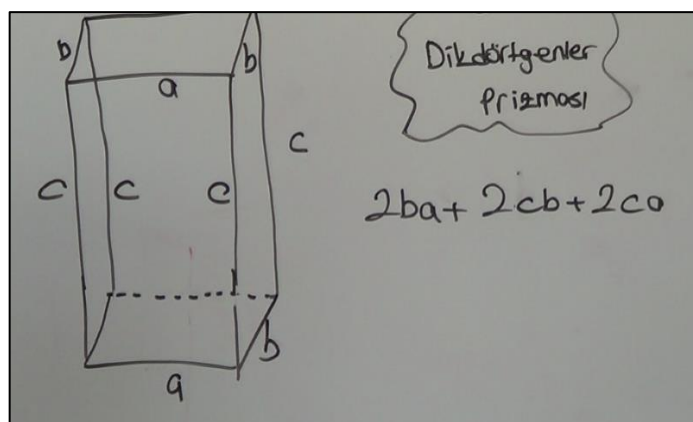 b
b
a
c
c
c
c
b
a
Dikdörtgenler
Prizması
2ba + 2cb + 2ca